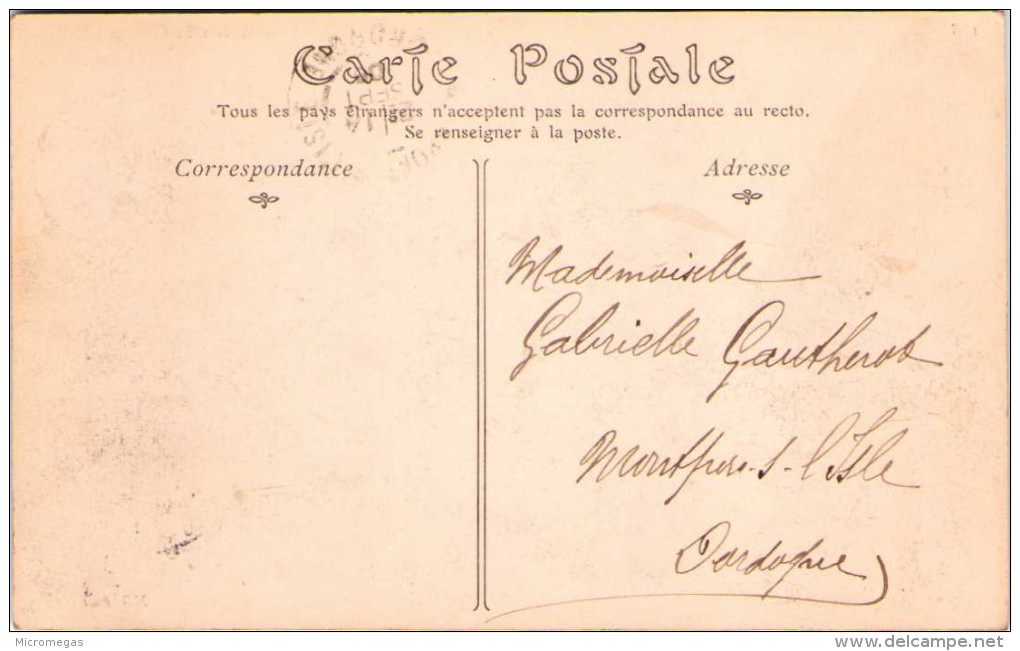 Carte Postale
Tous les pays étrangers n'acceptent pas la correspondance au recto.
Se renseigner à la poste.
Correspondance
Adresse
Mademoiselle
Gabrielle Gautherot
Montpon-s-l'Isle
Dordogne
Micromegas
www.delcampe.net